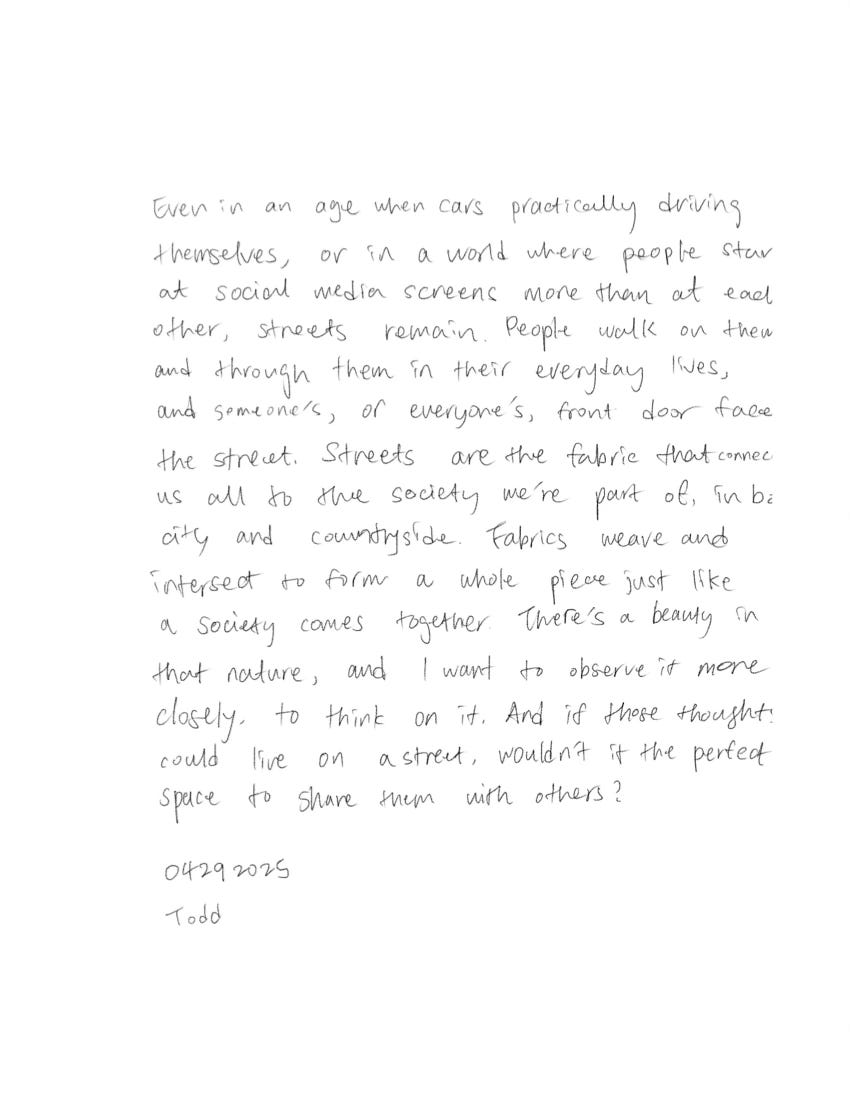 Even in an age when cars practically driving
themselves, or in a world where people star
at social media screens more than at each
other, streets remain. People walk on them
and through them in their everyday lives,
and someone's, or everyone's, front door face
the street. Streets are the fabric that connec
us all to the society we're part of, in
city and countryside. Fabrics weave and
intersect to form a whole piece just like
a society comes together. There's a beauty in
that nature, and I want to observe it more
closely, to think on it. And if those thought
could live on a street, wouldn't it the perfect
space to share them with others?
04292025
Todd